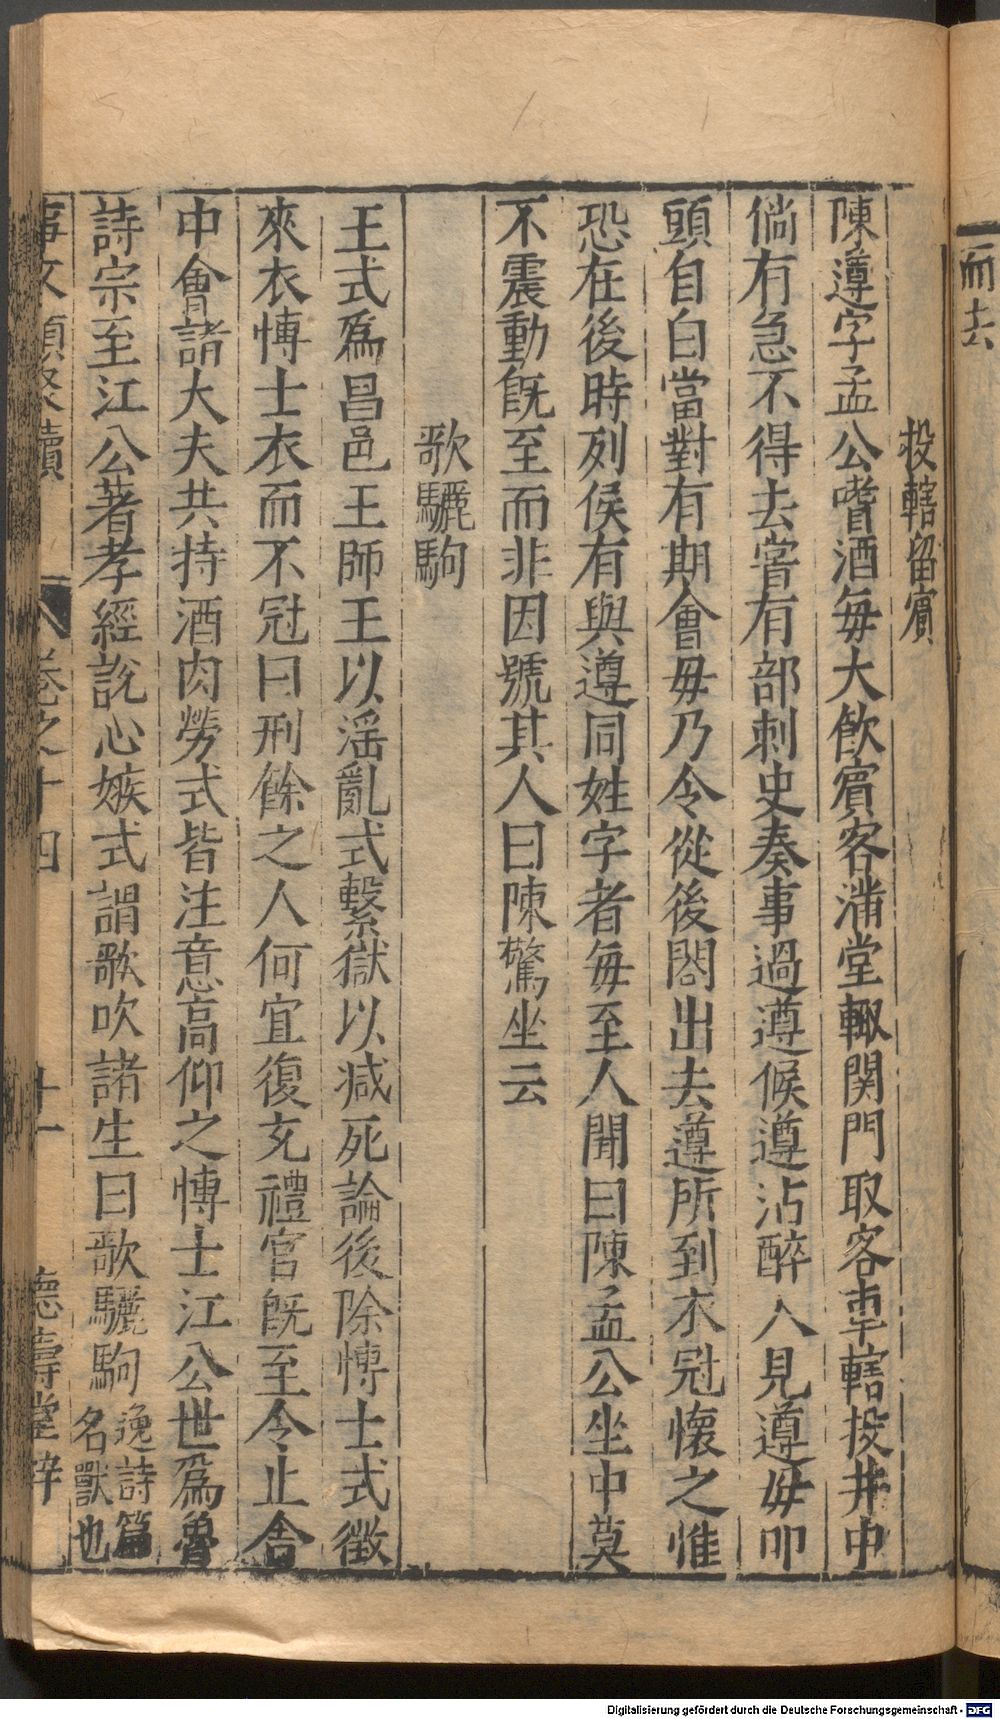 而去
投轄留賓
陳遵字孟公嗜酒每大飲賓客滿堂輙関門取客車轄投井中
倘有急不得去甞有部刺史奏事過遵候遵沾醉入見遵毋叩
頭自白當對有期會毋乃令從後閤出去遵所到衣冠懷之惟
恐在後時列侯有與遵同姓字者每至人聞曰陳孟公坐中莫
不震動旣至而非因號其人曰陳驚坐云
歌驪駒
王式爲昌邑王師王以滛亂式繫獄以減死論後除愽士式徵
來衣愽士衣而不冠曰刑餘之人何宜復充禮官旣至令止舍
中會諸大夫共持酒肉勞式皆注意高仰之愽士江公世爲魯
詩宗至江公著孝經說心嫉式謂歌吹諸生曰歌驪駒逸詩篇名獸也
事文類聚續 卷之十四 十一 德壽堂梓
Digitalisierung gefördert durch die Deutsche Forschungsgemeinschaft - DFG